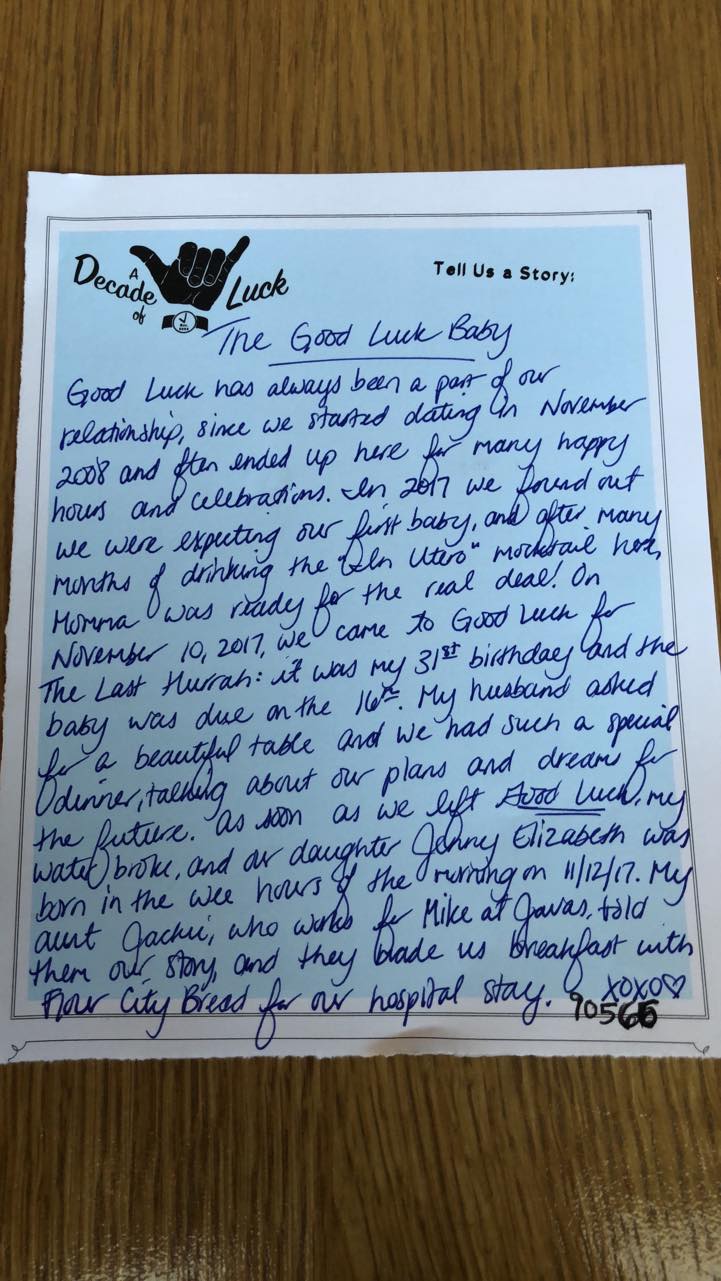 A Decade of Luck
EST. 2008
Tell Us a Story:
The Good Luck Baby
Good Luck has always been a part of our
relationship, since we started dating in November
2008 and often ended up here for many happy
hours and celebrations. In 2017 we found out
we were expecting our first baby, and after many
months of drinking the "In Utero" mocktail here,
Momma was ready for the real deal! On
November 10, 2017, we came to Good Luck for
The Last Hurrah: it was my 31st birthday and the
baby was due on the 16th. My husband asked
for a beautiful table and we had such a special
dinner, talking about our plans and dreams for
the future. As soon as we left Good Luck, my
water broke, and our daughter Jenny Elizabeth was
born in the wee hours of the morning on 11/12/17. My
aunt Jackie, who works for Mike at Javas, told
them our story, and they made us breakfast with
Flour City Bread for our hospital stay. XOXO♡
90565